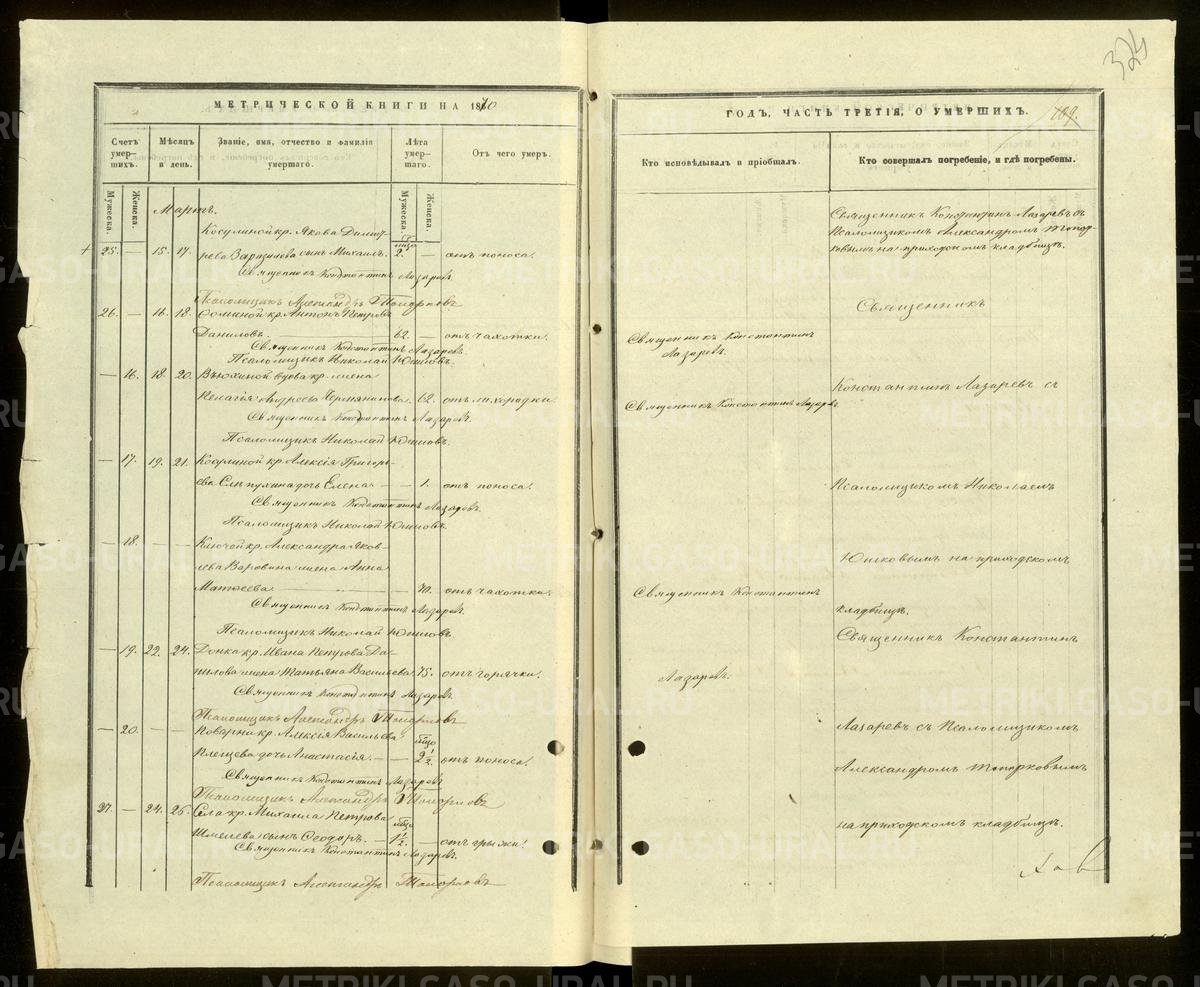 325
МЕТРИЧЕСКОЙ КНИГИ НА 1870
Счетъ умер-шихъ.
Мужеска.
Женска.
Мѣсяцъ и день.
Званіе, имя, отчество и фамилія умершаго.
Лѣта умер-шаго.
Мужеска.
Женска.
Отъ чего умеръ.
Мартъ.
Косулиной кр. Якова Димит-
25. — 15. 17. сынъ Михаилъ. 2. — отъ поноса.
Священникъ Константинъ Лазаревъ
Псаломщикъ Александръ Топорковъ
26. — 16. 18. кр. Антонъ Петровъ
Даниловъ. 62. — отъ чахотки.
Священникъ Константинъ Лазаревъ.
Псаломщикъ Николай Юшковъ.
— 16. 18. 20. кр. жена
Пелагія Андреева 62. отъ лихорадки.
Священникъ Константинъ Лазаревъ.
Псаломщикъ Николай Юшковъ.
— 17. 19. 21. Косулиной кр. Алексія Григорь-
ева дочь Елена — — 1. отъ поноса.
Священникъ Константинъ Лазаревъ.
Псаломщикъ Николай Юшковъ.
— 18. — — Ключей кр. Александра Яков-
лева жена Анна
Матѳеева — 70. отъ чахотки.
Священникъ Константинъ Лазаревъ.
Псаломщикъ Николай Юшковъ.
— 19. 22. 24. кр. Ивана Петрова Да-
нилова жена Татьяна Васильева 75. отъ горячки.
Священникъ Константинъ Лазаревъ.
Псаломщикъ Александръ Топорковъ
— 20. — — Поварни кр. Алексія Васильева
Плещева дочь Анастасія. — — 2 1/2. отъ поноса.
Священникъ Константинъ Лазаревъ
Псаломщикъ Александръ Топорковъ
27. — 24. 26. Села кр. Михаила Петрова
Шмелева сынъ Ѳеодоръ. — 1 1/2. — отъ грыжи.
Священникъ Константинъ Лазаревъ.
Псаломщикъ Александръ Топорковъ
ГОДЪ, ЧАСТЬ ТРЕТІЯ, О УМЕРШИХЪ.
109.
Кто исповѣдывалъ и пріобщалъ.
Кто совершалъ погребеніе, и гдѣ погребены.
Священникъ Константинъ Лазаревъ съ
Псаломщикомъ Александромъ Топор-
ковымъ на приходскомъ кладбищѣ.
Священникъ
Священникъ Константинъ
Лазаревъ.
Константинъ Лазаревъ съ
Священникъ Константинъ Лазаревъ
Псаломщикомъ Николаемъ
Юшковымъ на приходскомъ
Священникъ Константинъ
кладбищѣ.
Священникъ Константинъ
Лазаревъ.
Лазаревъ съ Псаломщикомъ
Александромъ Топорковымъ
на приходскомъ кладбищѣ.
METRIKI.GASO-URAL.RU